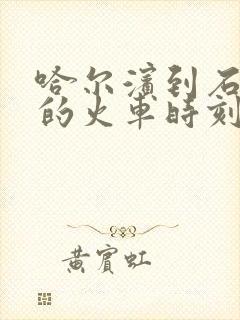 哈尔滨到石
的火车时刻
黄宾虹